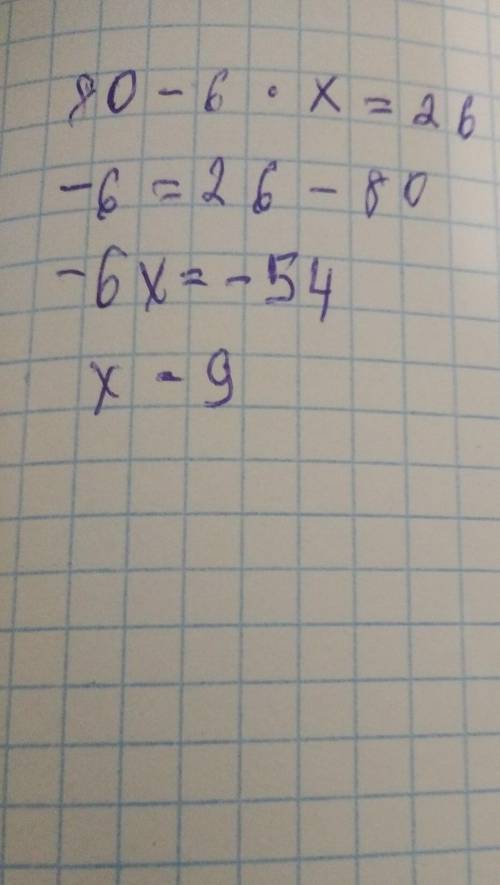 80 - 6 · x = 26
-6 = 26 - 80
-6x = -54
x - 9